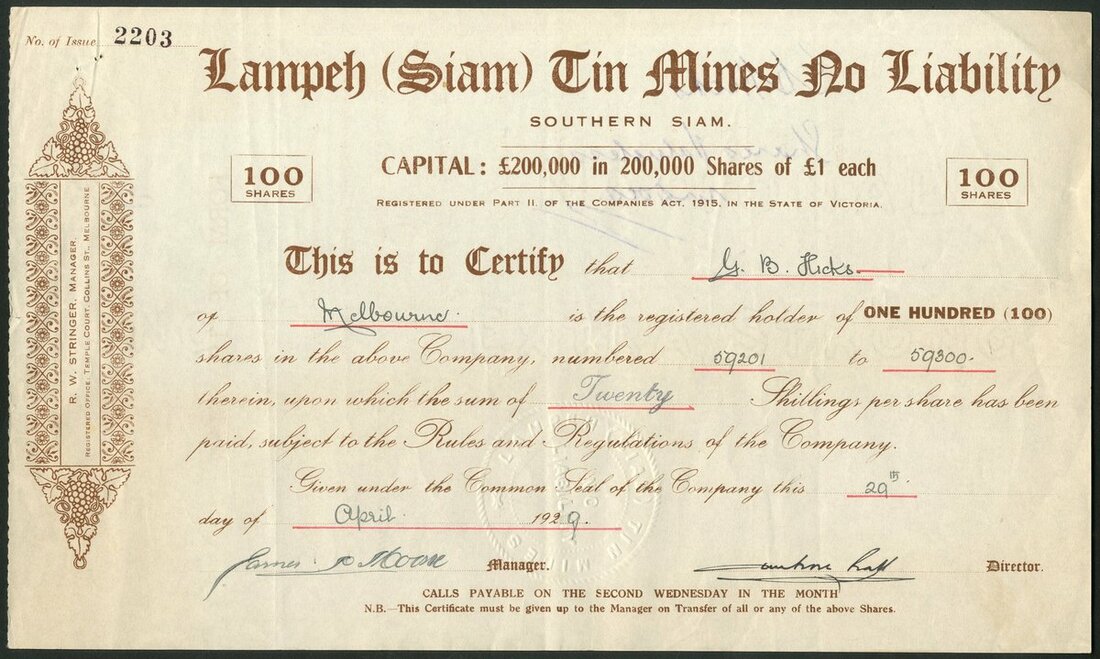 No. of Issue 2203
Lampeh (Siam) Tin Mines No Liability
SOUTHERN SIAM.
CAPITAL: £200,000 in 200,000 Shares of £1 each
100 SHARES
100 SHARES
REGISTERED UNDER PART II. OF THE COMPANIES ACT, 1915, IN THE STATE OF VICTORIA.
R. W. STRINGER, MANAGER.
REGISTERED OFFICE, TEMPLE COURT, COLLINS ST., MELBOURNE
This is to Certify that G. B. Hicks
of Melbourne is the registered holder of ONE HUNDRED (100)
shares in the above Company, numbered 59201 to 59300
therein, upon which the sum of Twenty Shillings per share has been
paid, subject to the Rules and Regulations of the Company.
Given under the Common Seal of the Company this 29th
day of April 1929.
James Moore Manager.
Director.
CALLS PAYABLE ON THE SECOND WEDNESDAY IN THE MONTH
N.B.—This Certificate must be given up to the Manager on Transfer of all or any of the above Shares.